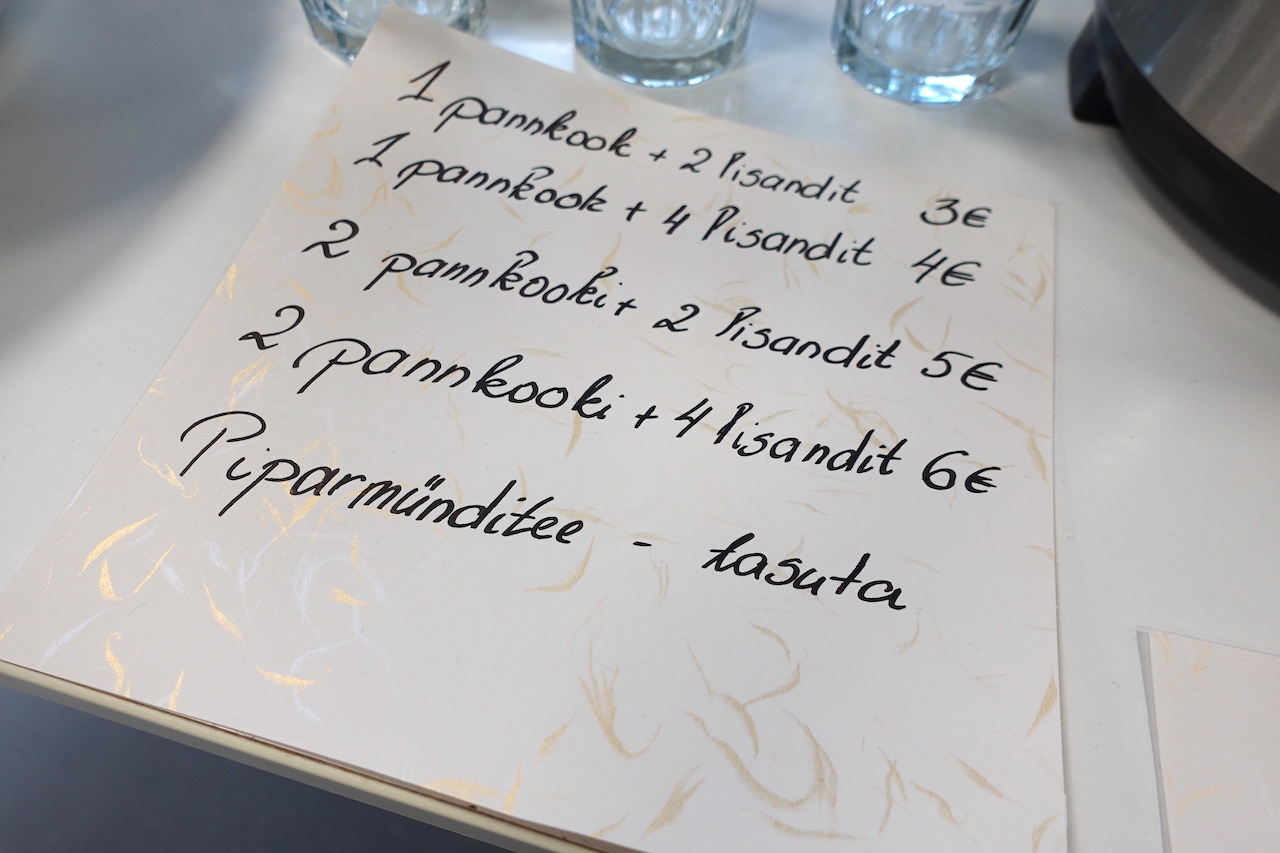 1 pannkook + 2 Pisandit 3€
1 pannkook + 4 Pisandit 4€
2 pannkooki + 2 Pisandit 5€
2 pannkooki + 4 Pisandit 6€
Piparmünditee - tasuta